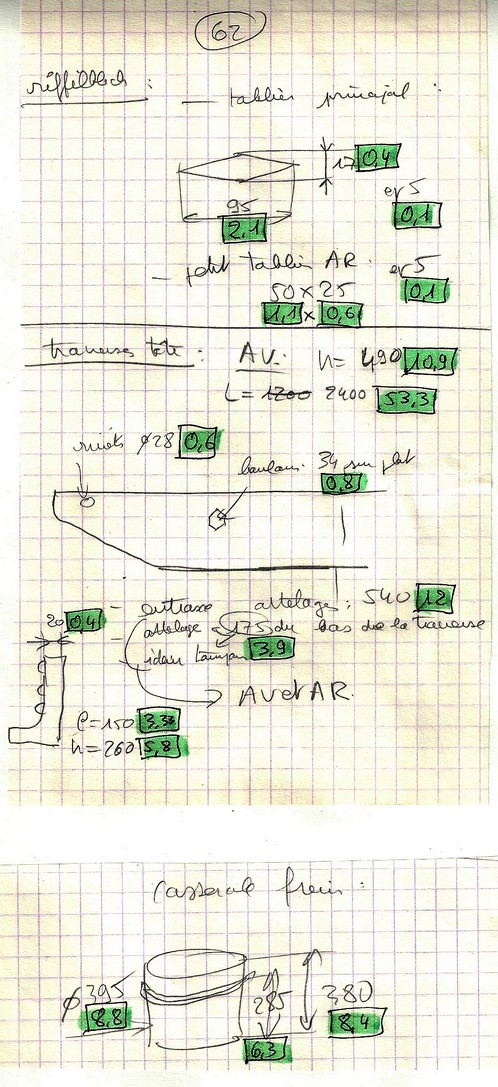 62
— tablier principal :
17 0,4
95
2,1
ep 5
0,1
— petit tablier AR. ep 5
0,1
50 x 25
1,1 x 0,6
traverses tête : AV. h = 490 10,9
L = 1200 2400 53,3
rivets ø 28 0,6
boulons 34 sur plat
0,8
20 0,4
— entraxe attelages : 540 12
— attelage 175 du bas de la traverse
3,9
— idem tampon
AV et AR.
l = 150 3,33
h = 260 5,8
casserole frein :
ø 395
8,8
285
6,3
380
8,4